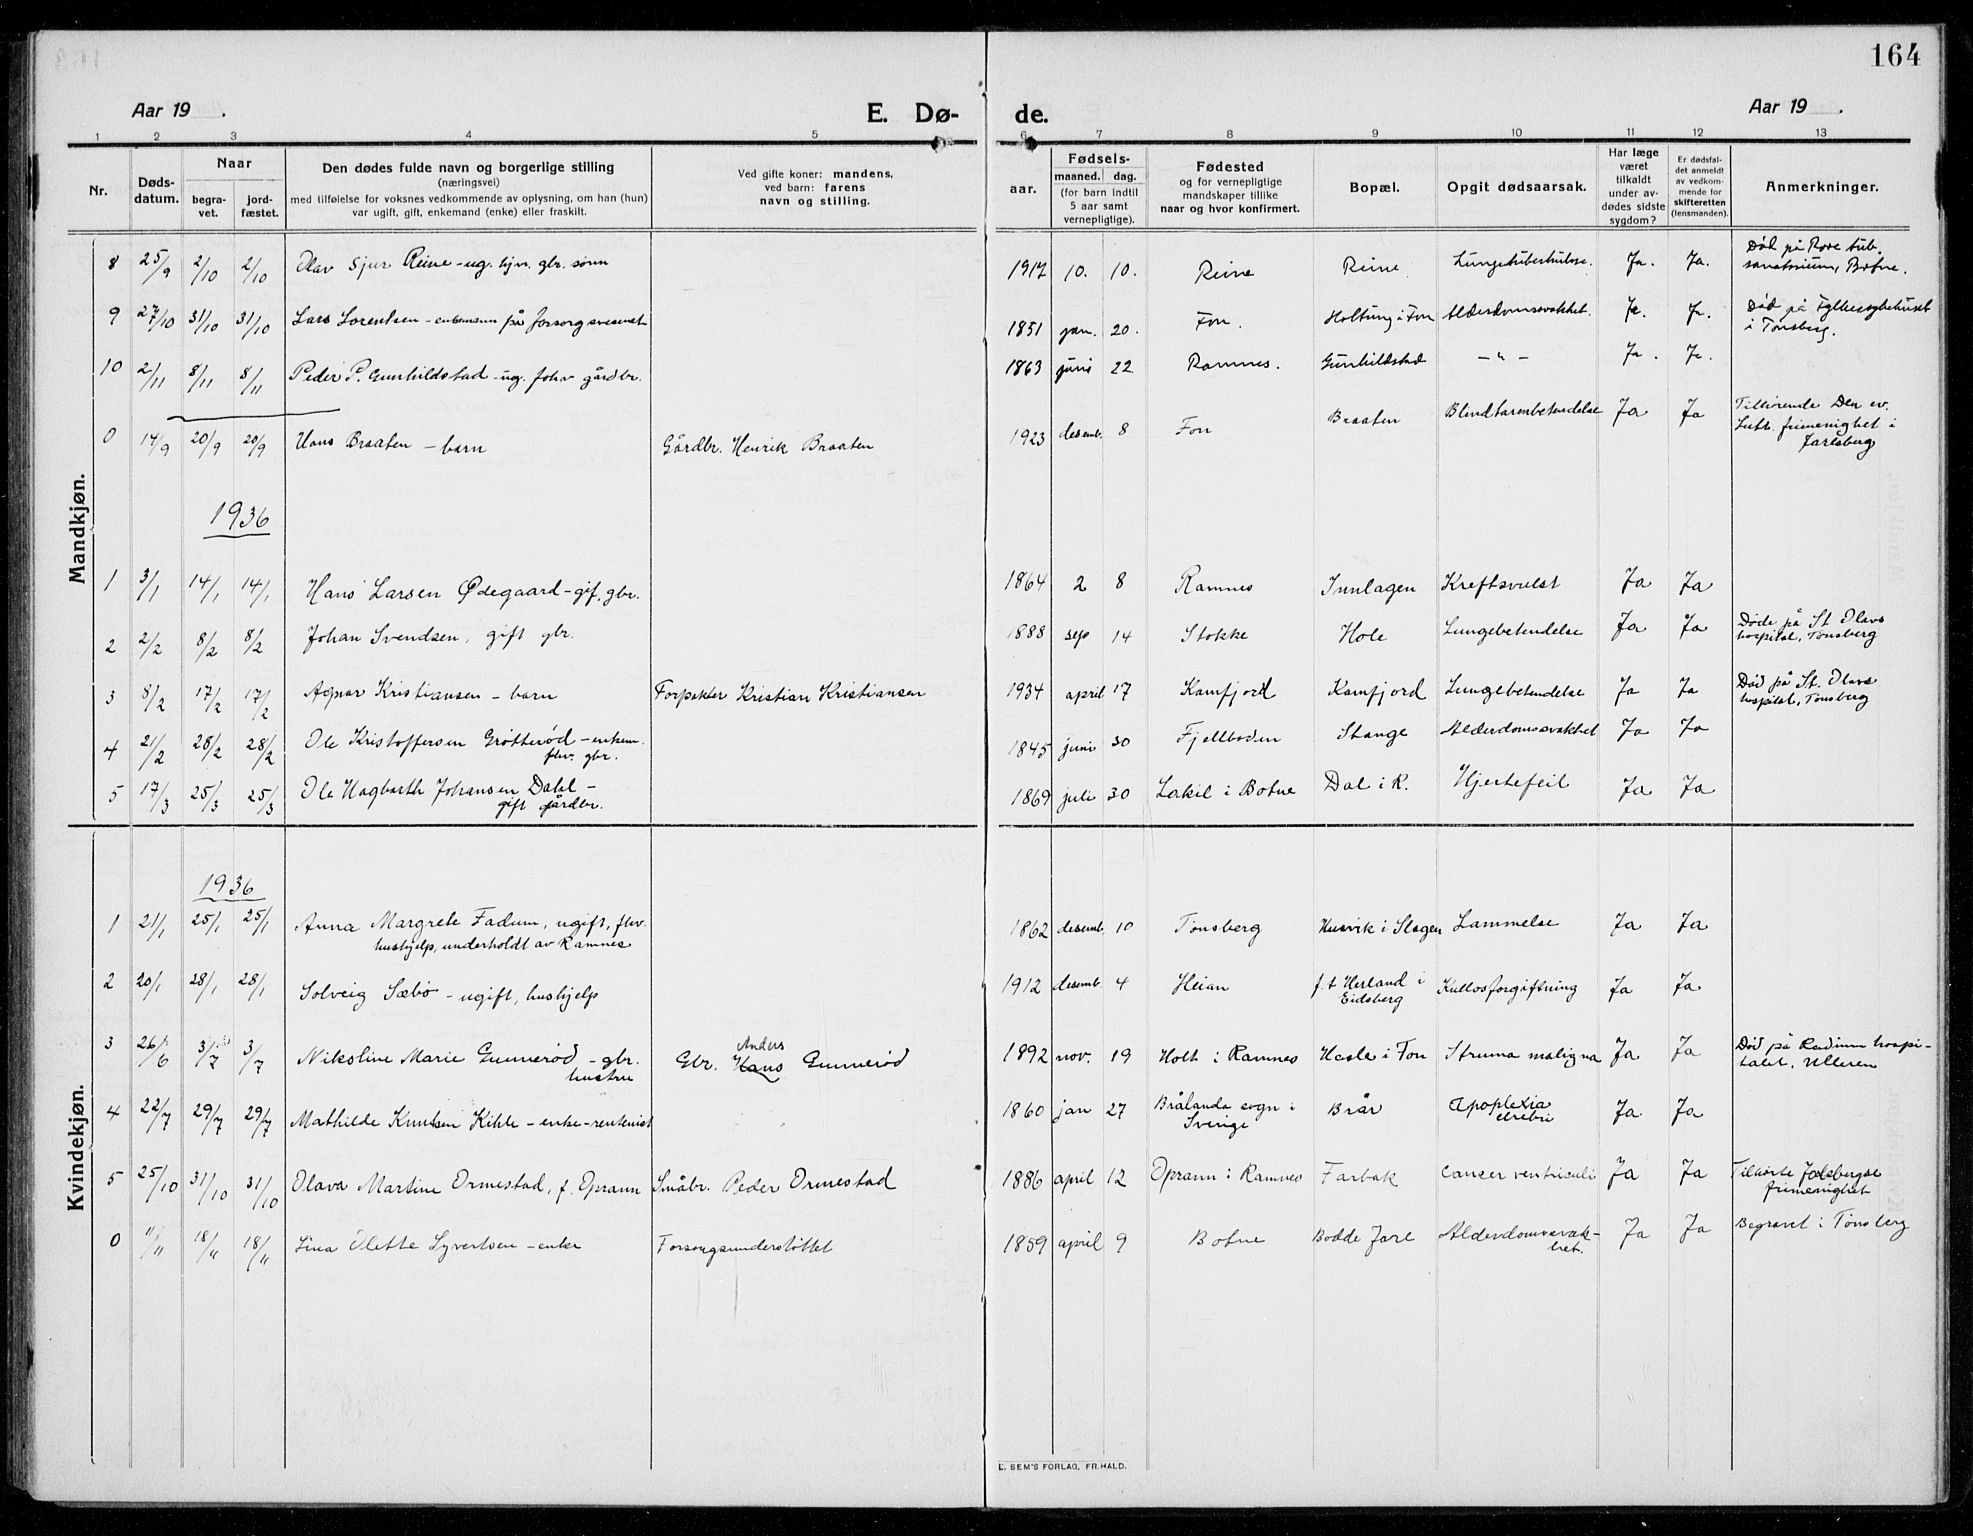 164
Aar 19 .
E. Dø-
de.
Aar 19 .
1 2 3 4 5 6 7 8 9 10 11 12 13
Nr.
Døds-
datum.
Naar
begra-
vet.
jord-
fæstet.
Den dødes fulde navn og borgerlige stilling
(næringsvei)
med tilføielse for voksnes vedkommende av oplysning, om han (hun)
var ugift, gift, enkemand (enke) eller fraskilt.
Ved gifte koner: mandens,
ved barn: farens
navn og stilling.
Fødsels-
aar.
maaned. dag.
(for barn indtil
5 aar samt
vernepligtige).
Fødested
og for vernepligtige
mandskaper tillike
naar og hvor konfirmert.
Bopæl.
Opgit dødsaarsak.
Har læge
været
tilkaldt
under av-
dødes sidste
sygdom?
Er dødsfal-
det anmeldt
av vedkom-
mende for
skifteretten
(lensmanden).
Anmerkninger.
Mandkjøn.
8 25/9 2/10 2/10 Olav Sjur Reine - ug. hjv. gbr. sønn 1917 10. 10. Reine Reine Lungetuberkulose. Ja. Ja. Død på Rove tub.
sanatorium, Botne.
9 27/10 31/10 31/10 Lars Lorentsen - enkemann på forsorgsvesenet 1851 jan. 20. Fon. Holtung i Fon Alderdomssvakhet. Ja. Ja. Død på Fylkessykehuset
i Tønsberg.
10 2/11 8/11 8/11 Peder P. Gunhildstad - ug. forhv gårdbr. 1863 juni 22 Ramnes. Gunhildstad - " - Ja. Ja.
0 14/9 20/9 20/9 Hans Braaten - barn Gårdbr. Henrik Braaten 1923 desemb. 8 Fon Braaten Blindtarmbetendelse Ja Ja Tilhørende Den ev.
luth. frimenighet i
Jarlsberg
1936
1 3/1 14/1 14/1 Hans Larsen Ødegaard - gif. gbr. 1864 2 8 Ramnes Innlagen Kreftsvulst Ja Ja
2 2/2 8/2 8/2 Johan Svendsen, gift gbr. 1888 sep 14 Stokke Hole Lungebetendelse Ja Ja Døde på St Olavs
hospital, Tønsberg
3 8/2 17/2 17/2 Agnar Kristiansen - barn Forpakter Kristian Kristiansen 1934 april 17 Kamfjord Kamfjord Lungebetendelse Ja Ja Død på St. Olavs
hospital, Tønsberg
4 21/2 28/2 28/2 Ole Kristoffersen Grøtterød - enkem.
fhv. gbr. 1845 juni 30 Fjellboden Stange Alderdomssvakhet Ja Ja
5 17/3 25/3 25/3 Ole Hagbarth Johansen Dahl -
gift gårdbr. 1869 juli 30 Løkil i Botne Dal i R. Hjertefeil Ja Ja
Kvindekjøn.
1936
1 21/1 25/1 25/1 Anna Margrete Fadum, ugift, fhv.
hushjelp, underholdt av Ramnes 1862 desemb. 10 Tønsberg Husvik i Slagen Lammelse Ja Ja
2 20/1 28/1 28/1 Solveig Sæbø - ugift, hushjelp 1912 desemb. 4 Heian f.t Herland i
Eidsberg Kullosforgiftning Ja Ja
3 26/6 3/7 3/7 Nikoline Marie Gunnerød - gbr.
hustru Gbr. Hans Anders Gunnerød 1892 nov. 19 Holt i Ramnes Hasle i Fon Struma maligna Ja Ja Død på Radium hospi-
talet, Ulleren
4 22/7 29/7 29/7 Mathilde Knutsen Kihle - enke - rentenist 1860 jan 27 Brålanda sogn i
Sverige Brår Apoplexia
cerebri Ja Ja
5 25/10 31/10 31/10 Olava Martine Ormestad, f. Oprann Småbr. Peder Ormestad 1886 april 12 Oprann i Ramnes Farbak cancer ventriculi Ja Ja Tilhørte Jarlsberg
frimenighet
0 11/11 18/11 18/11 Lina Olette Syvertsen - enke Forsorgsunderstøttet 1859 april 9 Botne Bodde Jarl Alderdomssvak-
het. Ja Ja Begravet i Tønsberg
E. SEM'S FORLAG, FR.HALD.